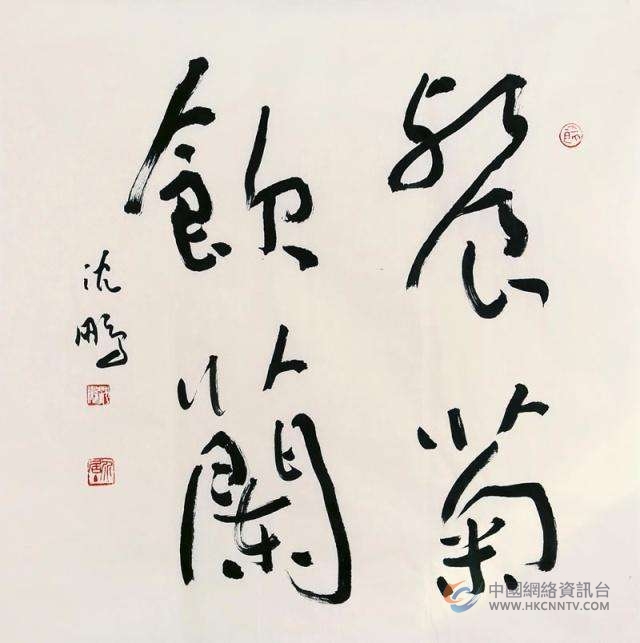 餐菊
飲蘭
沈鵬
中國網絡資訊台
WWW.HKCNNTV.COM